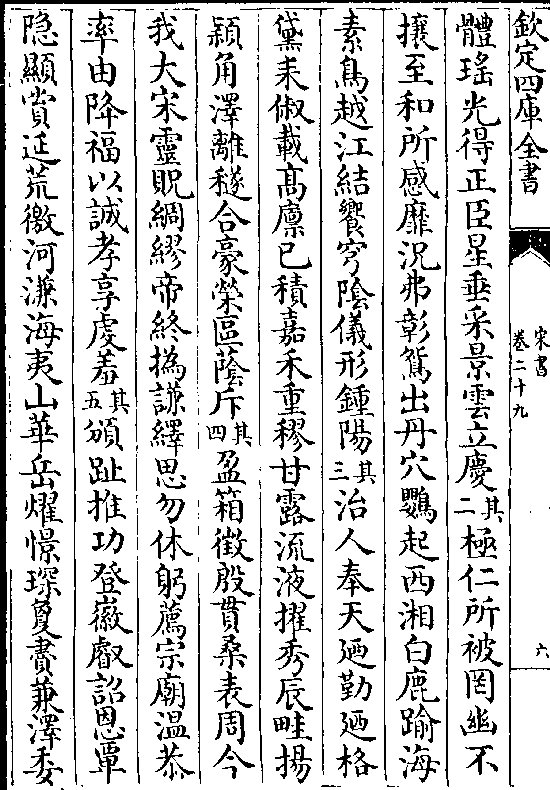 欽定四庫全書
宋書
卷二十九
六
體瑤光得正臣星垂采景雲立慶其二極仁所被罔幽不
攘至和所感靡況弗彰鵷出丹穴鸚起西湘白鹿踰海
素鳥越江結響穹陰儀形鍾陽其三治人奉天廼勤廼格
黛耒俶載髙廪已積嘉禾重穋甘露流液擢秀辰畦揚
穎角澤離穟合豪榮區蔭斥其四盈箱徵殷貫桑表周今
我大宋靈貺綢繆帝終撝謙繹思勿休躬薦宗廟温恭
率由降福以誠孝享虔羞其五頒趾推功登徽叡詔恩覃
隐顯賞延荒徼河溓海夷山華岳燿憬琛夐賮兼澤委